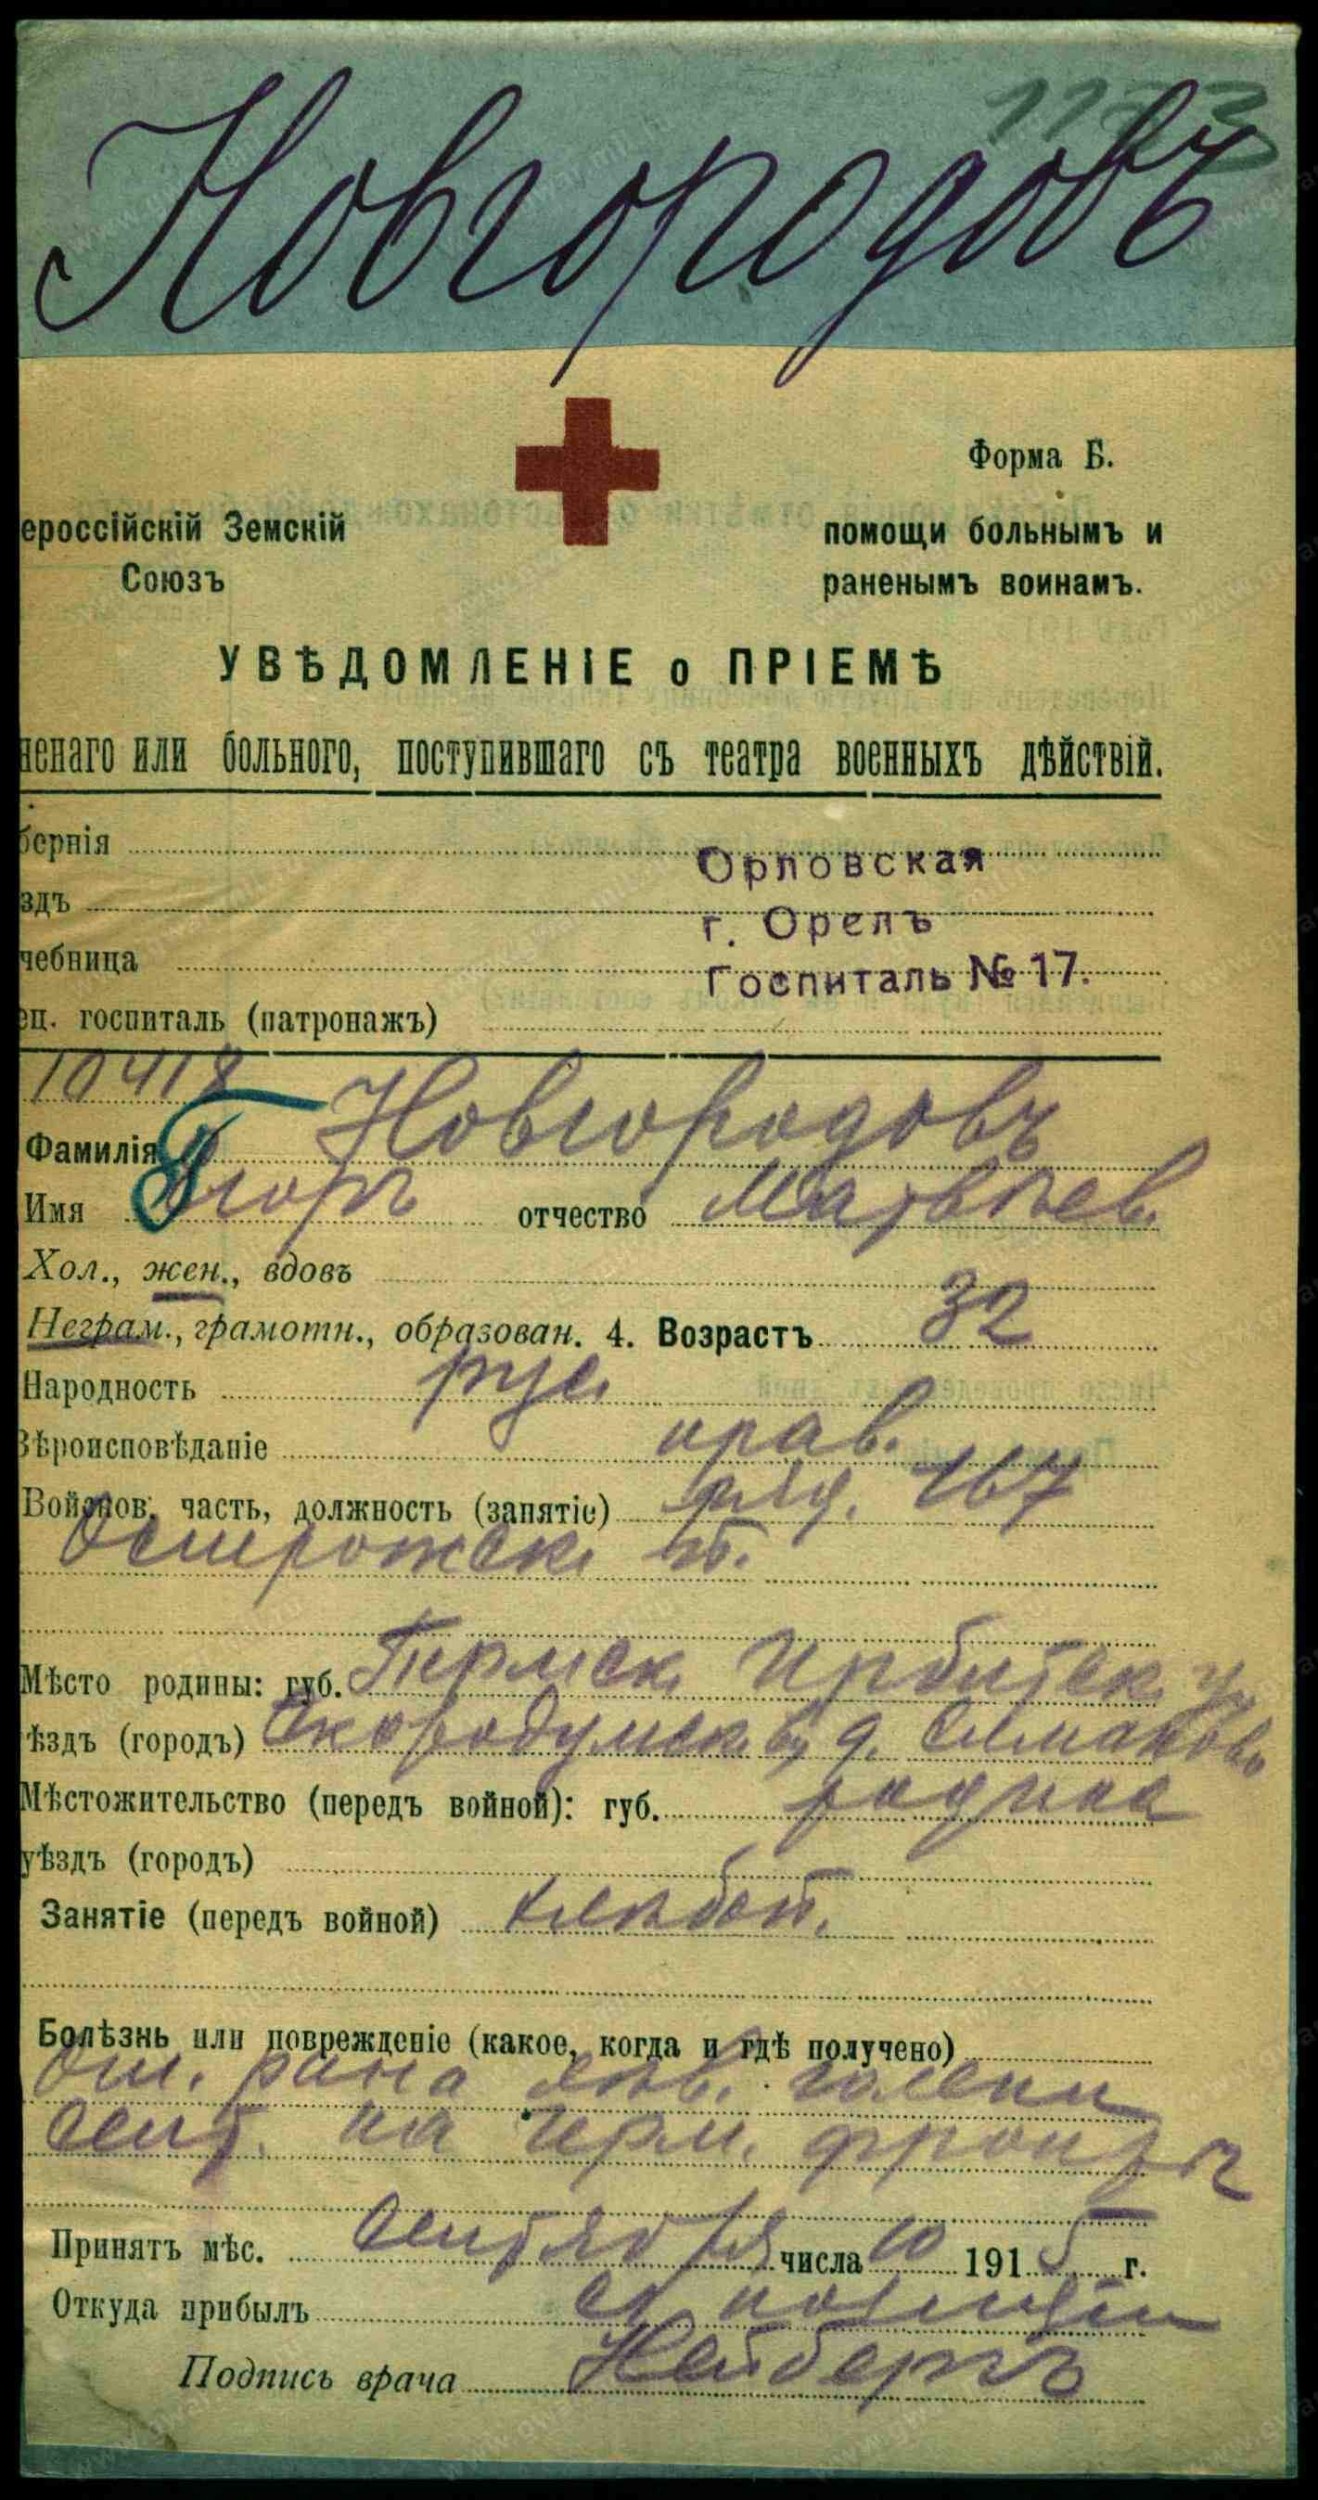 1123
Новгородовъ
Форма Б.
ероссійскій Земскій
Союзъ
помощи больнымъ и
раненымъ воинамъ.
УВѢДОМЛЕНІЕ о ПРІЕМѢ
ненаго или больного, поступившаго съ театра военныхъ дѣйствій.
бернія Орловская
здъ г. Орелъ
чебница Госпиталь № 17.
ец. госпиталь (патронажъ)
10418
Фамилія Новгородовъ
Имя Егоръ отчество Матвѣев.
Хол., жен., вдовъ
Неграм., грамотн., образован. 4. Возрастъ 32
Народность рус.
Вѣроисповѣданіе прав.
Войсков. часть, должность (занятіе) ряд. 167
Острожск. п.
Мѣсто родины: губ. Пермск. Ирбитск. у.
ѣздъ (городъ) Скородумск. в. д. Симаково
Мѣстожительство (передъ войной): губ. родина
уѣздъ (городъ)
Занятіе (передъ войной) хлебоп.
Болѣзнь или поврежденіе (какое, когда и гдѣ получено)
Огн. рана лѣв. голени
Сент. на герм. фронтѣ
Принятъ мѣс. Сентября числа 10 1915 г.
Откуда прибылъ съ позиціи
Подпись врача Нейбергъ